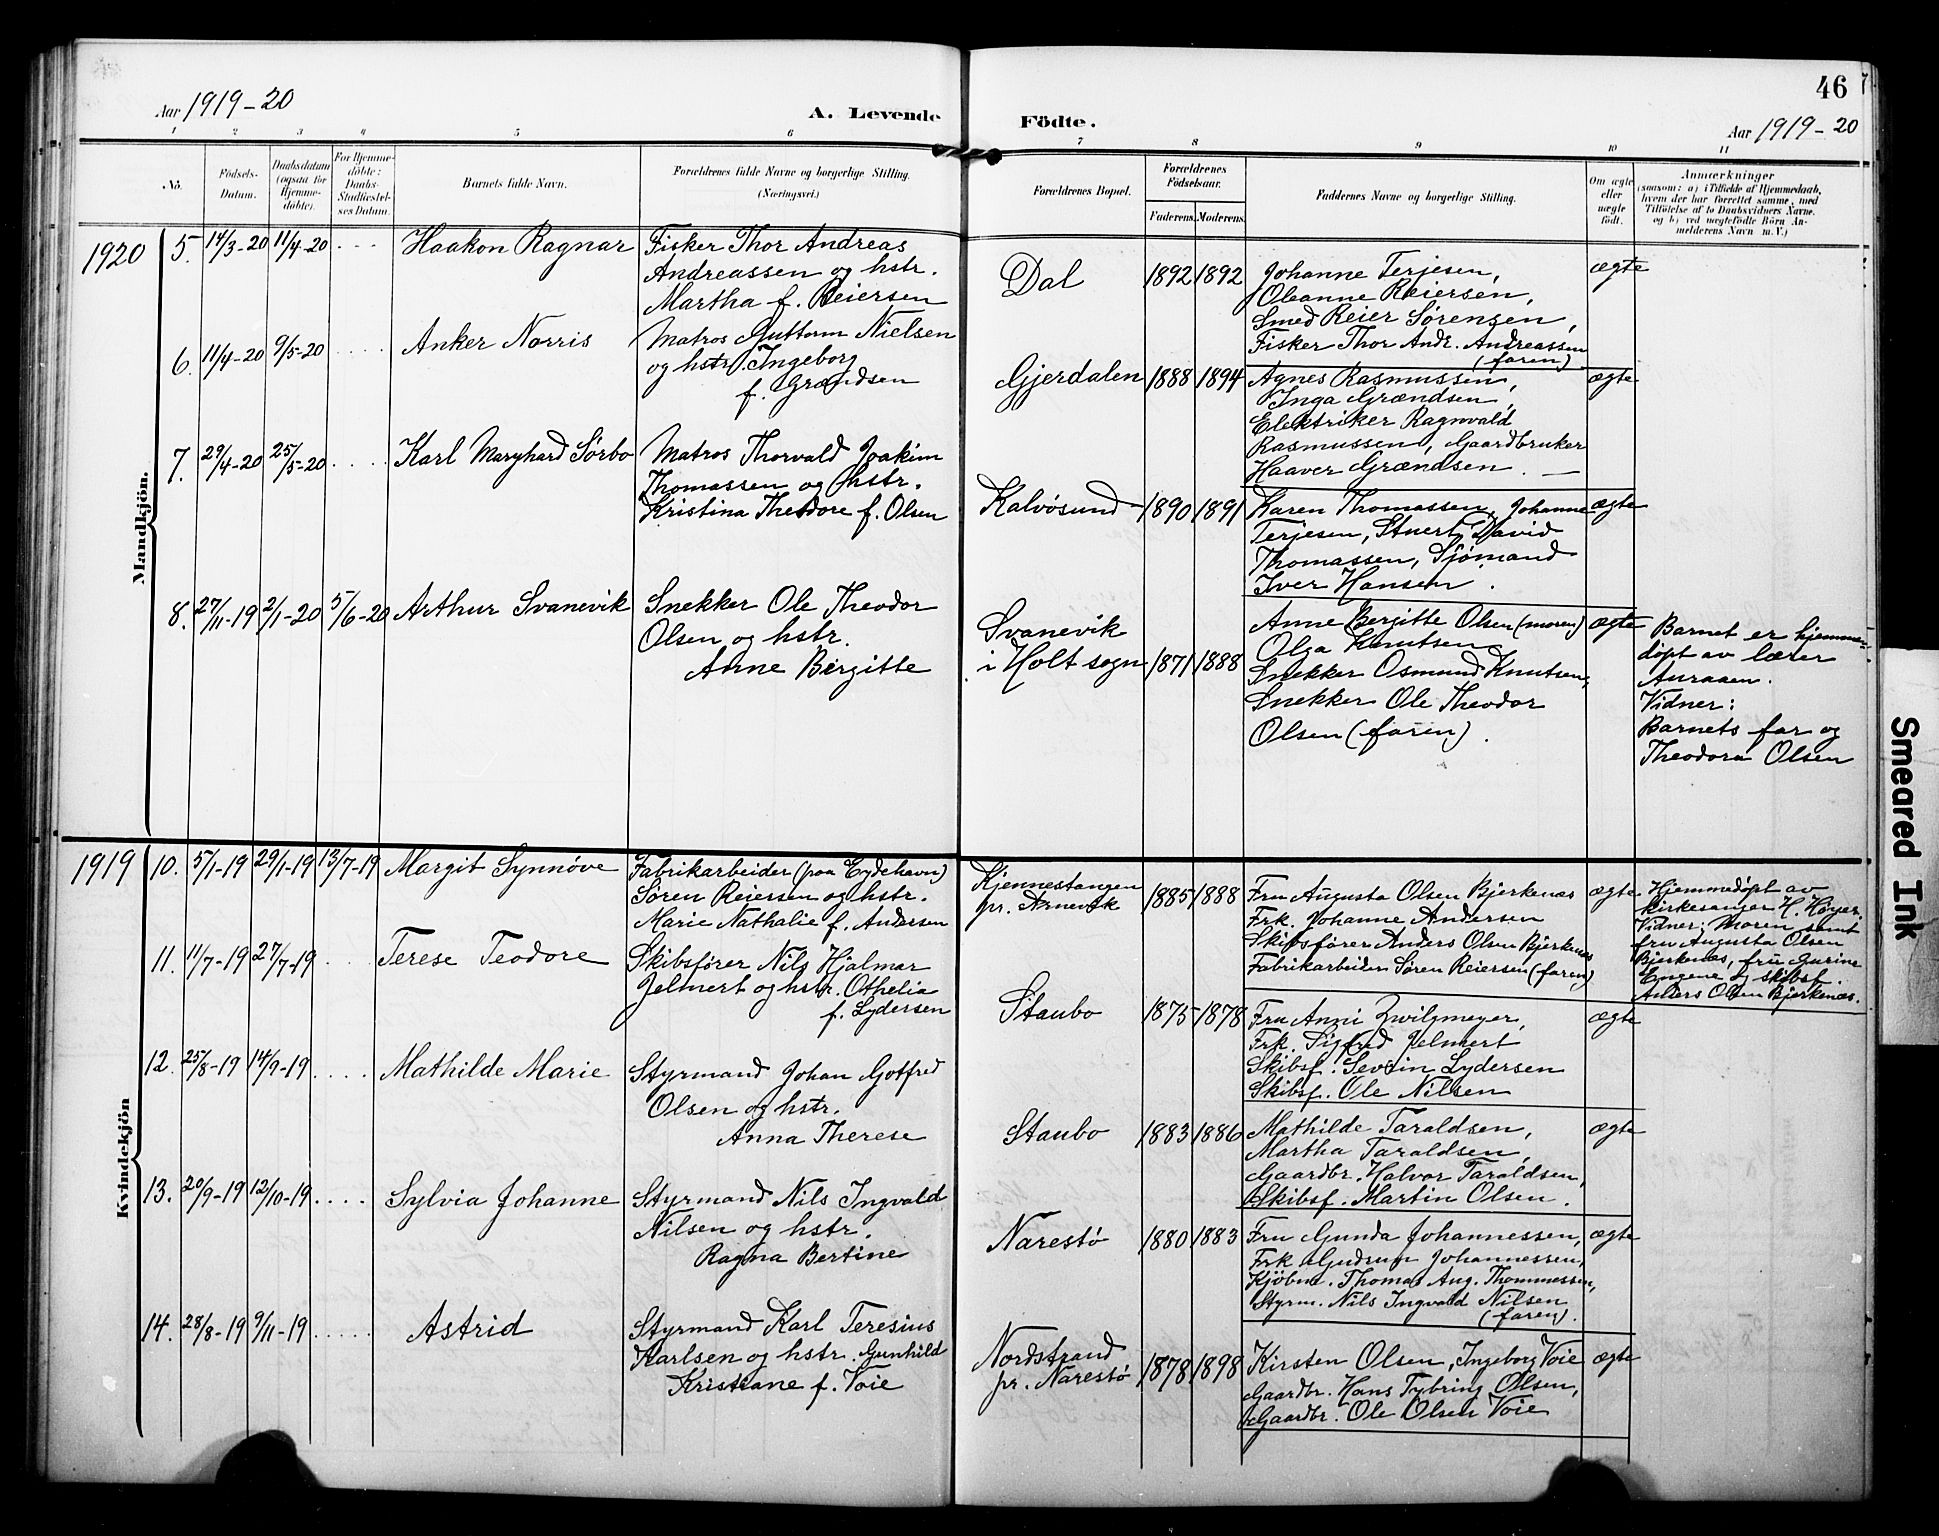 46
Aar 1919-20
A. Levende
Födte.
Aar 1919-20
1 2 3 4 5 6 7 8 9 10 11
No.
Födsels-
Datum.
Daabsdatum
(ogsaa for
Hjemme-
döbte).
For Hjemme-
döbte:
Daabs-
Stadfæstel-
ses Datum.
Barnets fulde Navn.
Forældrenes fulde Navne og borgerlige Stilling.
(Næringsvei.)
Forældrenes Bopæl.
Forældrenes
Födselsaar.
Faderens.
Moderens.
Faddernes Navne og borgerlige Stilling.
Om ægte
eller
uægte
födt.
Anmærkninger
(saasom: a) i Tilfælde af Hjemmedaab,
hvem der har forrettet samme, med
Tilföielse af to Daabsvidners Navne.
og b) ved uægtefödte Börn An-
melderens Navn m. V.)
Mandkjön.
1920
5. 14/3-20 11/4-20 Haakon Ragnar
Fisker Thor Andreas
Andreassen og hstr.
Martha f. Reiersen
Dal 1892 1892
Johanne Terjesen,
Oleanne Reiersen,
Smed Reier Sörensen,
Fisker Thor Andr. Andreassen
(faren)
ægte
6. 11/4-20 9/5-20 Anker Norris
Matros Guttorm Nielsen
og hstr. Ingeborg
f. Grændsen
Gjerdalen 1888 1894
Agnes Rasmussen,
Inga Grændsen,
Elektriker Ragnvald
Rasmussen, Gaardbruker
Haaver Grændsen.
ægte
7. 29/4-20 25/5-20 Karl Maryhard Sörbo
Matros Thorvald Joakim
Thomassen og hstr.
Kristina Theodore f. Olsen
Kalvøsund 1890 1891
Karen Thomassen, Johanne
Terjesen, Stuert David
Thomassen, Sjömand
Iver Hansen.
ægte
8. 27/11-19 2/1-20 5/6-20 Arthur Svanevik
Snekker Ole Theodor
Olsen og hstr.
Anne Birgitte
Svanevik
i Holt sogn 1871 1888
Anne Bergitte Olsen (moren)
Olga Knutsen
Snekker Osmund Knutsen,
Snekker Ole Theodor
Olsen (faren).
ægte
Barnet er hjemme-
döpt av lærer
Auraaen.
Vidner:
Barnets far og
Theodora Olsen
Smeared Ink
Kvindekjön
1919
10. 5/1-19 29/1-19 13/7-19 Margit Synnöve
Fabrikarbeider (paa Eydehavn)
Sören Reiersen og hstr.
Marie Nathalie f. Andersen
Kjennestangen
pr. Arnevik 1885 1888
Fru Augusta Olsen Bjerkenæs
Frk. Johanne Andersen
Skibsfører Anders Olsen Bjerkenæs
Fabrikarbeider Sören Reiersen (faren)
ægte
Hjemmedöpt av
kirkesanger H. Höyer.
Vidner: Moren samt
fru Augusta Olsen
Bjerkenæs, fru Gurine
Engene og skibsf.
Anders Olsen Bjerkenæs.
11. 11/7-19 27/7-19 Terese Teodore
Skibsförer Nils Hjalmar
Jelmert og hstr. Othelia
f. Lydersen
Staubo 1875 1878
Fru Anni Zwilgmeyer,
Frk. Sigfrid Jelmert
Skibsf. Severin Lydersen
Skibsf. Ole Nilsen
ægte
12. 25/8-19 14/9-19 Mathilde Marie
Styrmand Johan Gotfred
Olsen og hstr.
Anna Therese
Staubo 1883 1886
Mathilde Taraldsen,
Martha Taraldsen,
Gaardbr. Halvor Taraldsen,
Skibsf. Martin Olsen.
ægte
13. 20/9-19 12/10-19 Sylvia Johanne
Styrmand Nils Ingvald
Nilsen og hstr.
Ragna Bertine
Narestö 1880 1883
Fru Gunda Johannessen,
Frk Gudrun Johannessen,
Kjöbm. Thomas Aug. Thommessen,
Styrm. Nils Ingvald Nilsen
(faren).
ægte
14. 28/8-19 9/11-19 Astrid
Styrmand Karl Teresius
Karlsen og hstr. Gunhild
Kristiane f. Voie
Nordstrand
pr. Narestö 1878 1898
Kirsten Olsen, Ingeborg Voie
Gaardbr. Hans Tybring Olsen,
Gaardbr. Ole Olsen Voie
ægte